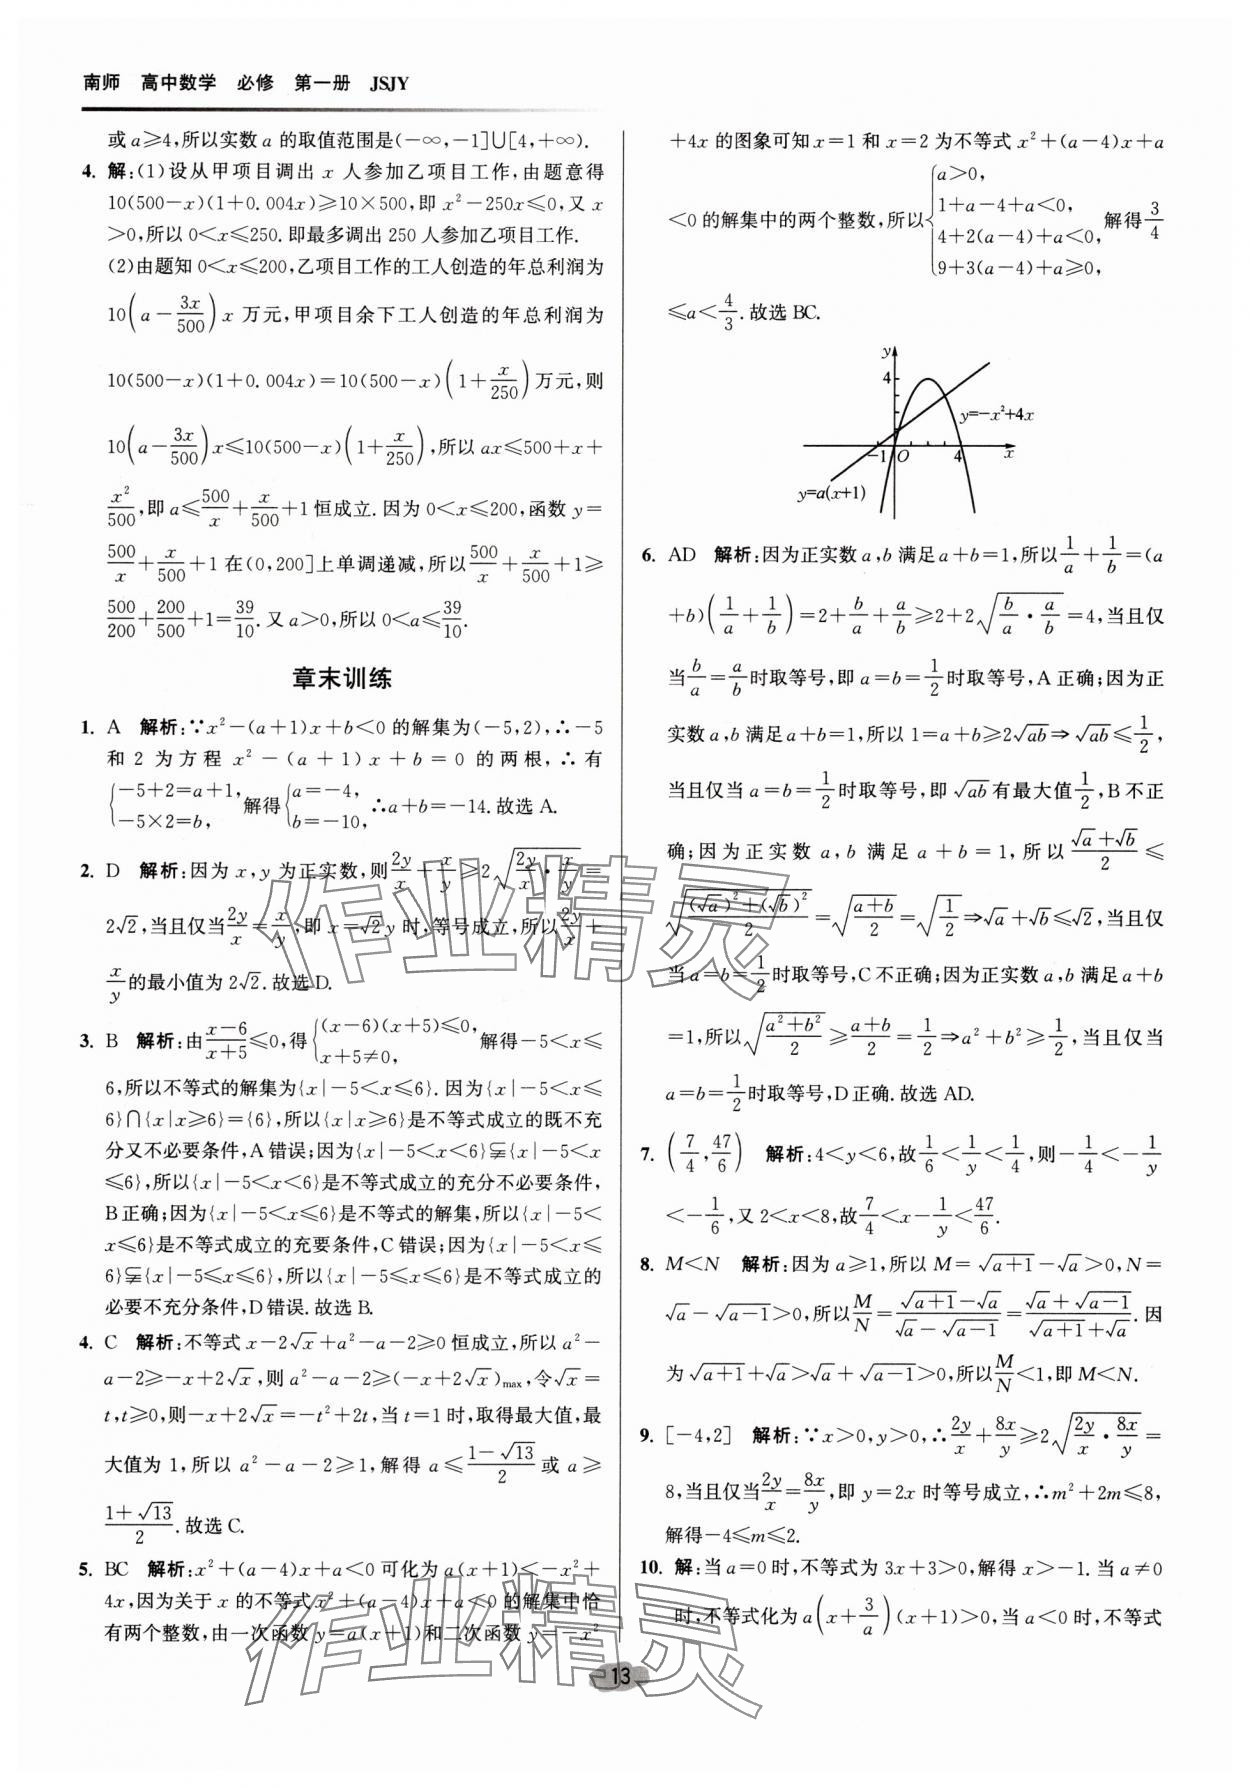 南师 高中数学 必修 第一册 JSJY
或 a≥4,所以实数 a 的取值范围是(-∞,-1]∪[4,+∞).
4. 解:(1)设从甲项目调出 x 人参加乙项目工作,由题意得
10(500-x)(1+0.004x)≥10×500,即 x²-250x≤0,又 x
>0,所以 0<x≤250.即最多调出 250 人参加乙项目工作.
(2)由题知 0<x≤200,乙项目工作的工人创造的年总利润为
10(a-3x/500)x 万元,甲项目余下工人创造的年总利润为
10(500-x)(1+0.004x)=10(500-x)(1+x/250)万元,则
10(a-3x/500)x≤10(500-x)(1+x/250),所以 ax≤500+x+
x²/500,即 a≤500/x+x/500+1恒成立.因为 0<x≤200,函数 y=
500/x+x/500+1在(0,200]上单调递减,所以500/x+x/500+1≥
500/200+200/500+1=39/10.又 a>0,所以 0<a≤39/10.
章末训练
1. A 解析:∵x²-(a+1)x+b<0 的解集为(-5,2),∴-5
和 2 为方程 x²-(a+1)x+b=0 的两根,∴有
{-5+2=a+1, -5×2=b, 解得{a=-4, b=-10, ∴a+b=-14.故选 A.
2. D 解析:因为 x,y 为正实数,则2y/x+x/y≥2√(2y/x·x/y)=
2√2,当且仅当2y/x=x/y,即 x=√2y 时,等号成立,所以2y/x+
x/y的最小值为 2√2.故选 D.
3. B 解析:由(x-6)/(x+5)≤0,得{(x-6)(x+5)≤0, x+5≠0, 解得-5<x≤
6,所以不等式的解集为{x|-5<x≤6}.因为{x|-5<x≤
6}∩{x|x≥6}={6},所以{x|x≥6}是不等式成立的既不充
分又不必要条件,A 错误;因为{x|-5<x<6}⫋{x|-5<x
≤6},所以{x|-5<x<6}是不等式成立的充分不必要条件,
B正确;因为{x|-5<x≤6}是不等式的解集,所以{x|-5<
x≤6}是不等式成立的充要条件,C 错误;因为{x|-5<x≤
6}⫋{x|-5≤x≤6},所以{x|-5≤x≤6}是不等式成立的
必要不充分条件,D 错误.故选 B.
4. C 解析:不等式 x-2√x+a²-a-2≥0 恒成立,所以 a²-
a-2≥-x+2√x,则 a²-a-2≥(-x+2√x)max,令√x=
t,t≥0,则-x+2√x=-t²+2t,当 t=1 时,取得最大值,最
大值为 1,所以 a²-a-2≥1,解得 a≤(1-√13)/2 或 a≥
(1+√13)/2.故选 C.
5. BC 解析:x²+(a-4)x+a<0 可化为 a(x+1)<-x²+
4x,因为关于 x 的不等式 x²+(a-4)x+a<0 的解集中恰
有两个整数,由一次函数 y=a(x+1)和二次函数 y=-x²
+4x 的图象可知 x=1 和 x=2 为不等式 x²+(a-4)x+a
<0 的解集中的两个整数,所以{a>0, 1+a-4+a<0, 4+2(a-4)+a<0, 9+3(a-4)+a≥0, 解得3/4
≤a<4/3.故选 BC.
y
4
y=-x²+4x
-1 O 4 x
y=a(x+1)
6. AD 解析:因为正实数 a,b 满足 a+b=1,所以1/a+1/b=(a
+b)(1/a+1/b)=2+b/a+a/b≥2+2√(b/a·a/b)=4,当且仅
当b/a=a/b时取等号,即 a=b=1/2时取等号,A 正确;因为正
实数 a,b 满足 a+b=1,所以 1=a+b≥2√ab⇒√ab≤1/2,
当且仅当 a=b=1/2时取等号,即 √ab有最大值1/2,B 不正
确;因为正实数 a,b 满足 a+b=1,所以(√a+√b)/2≤
√(((√a)²+(√b)²)/2)=√((a+b)/2)=√(1/2)⇒√a+√b≤√2,当且仅
当 a=b=1/2时取等号,C 不正确;因为正实数 a,b 满足 a+b
=1,所以√((a²+b²)/2)≥(a+b)/2=1/2⇒a²+b²≥1/2,当且仅当
a=b=1/2时取等号,D正确.故选 AD.
7. (7/4,47/6) 解析:4<y<6,故1/6<1/y<1/4,则-1/4<-1/y
<-1/6,又 2<x<8,故7/4<x-1/y<47/6.
8. M<N 解析:因为 a≥1,所以 M=√(a+1)-√a>0,N=
√a-√(a-1)>0,所以M/N=(√(a+1)-√a)/(√a-√(a-1))=(√a+√(a-1))/(√(a+1)+√a).因
为√(a+1)+√a>√a+√(a-1)>0,所以M/N<1,即 M<N.
9. [-4,2] 解析:∵x>0,y>0,∴2y/x+8x/y≥2√(2y/x·8x/y)=
8,当且仅当2y/x=8x/y,即 y=2x 时等号成立,∴m²+2m≤8,
解得-4≤m≤2.
10. 解:当 a=0 时,不等式为 3x+3>0,解得 x>-1.当 a≠0
时,不等式化为 a(x+3/a)(x+1)>0,当 a<0 时,不等式
13
作业精灵
作业精灵